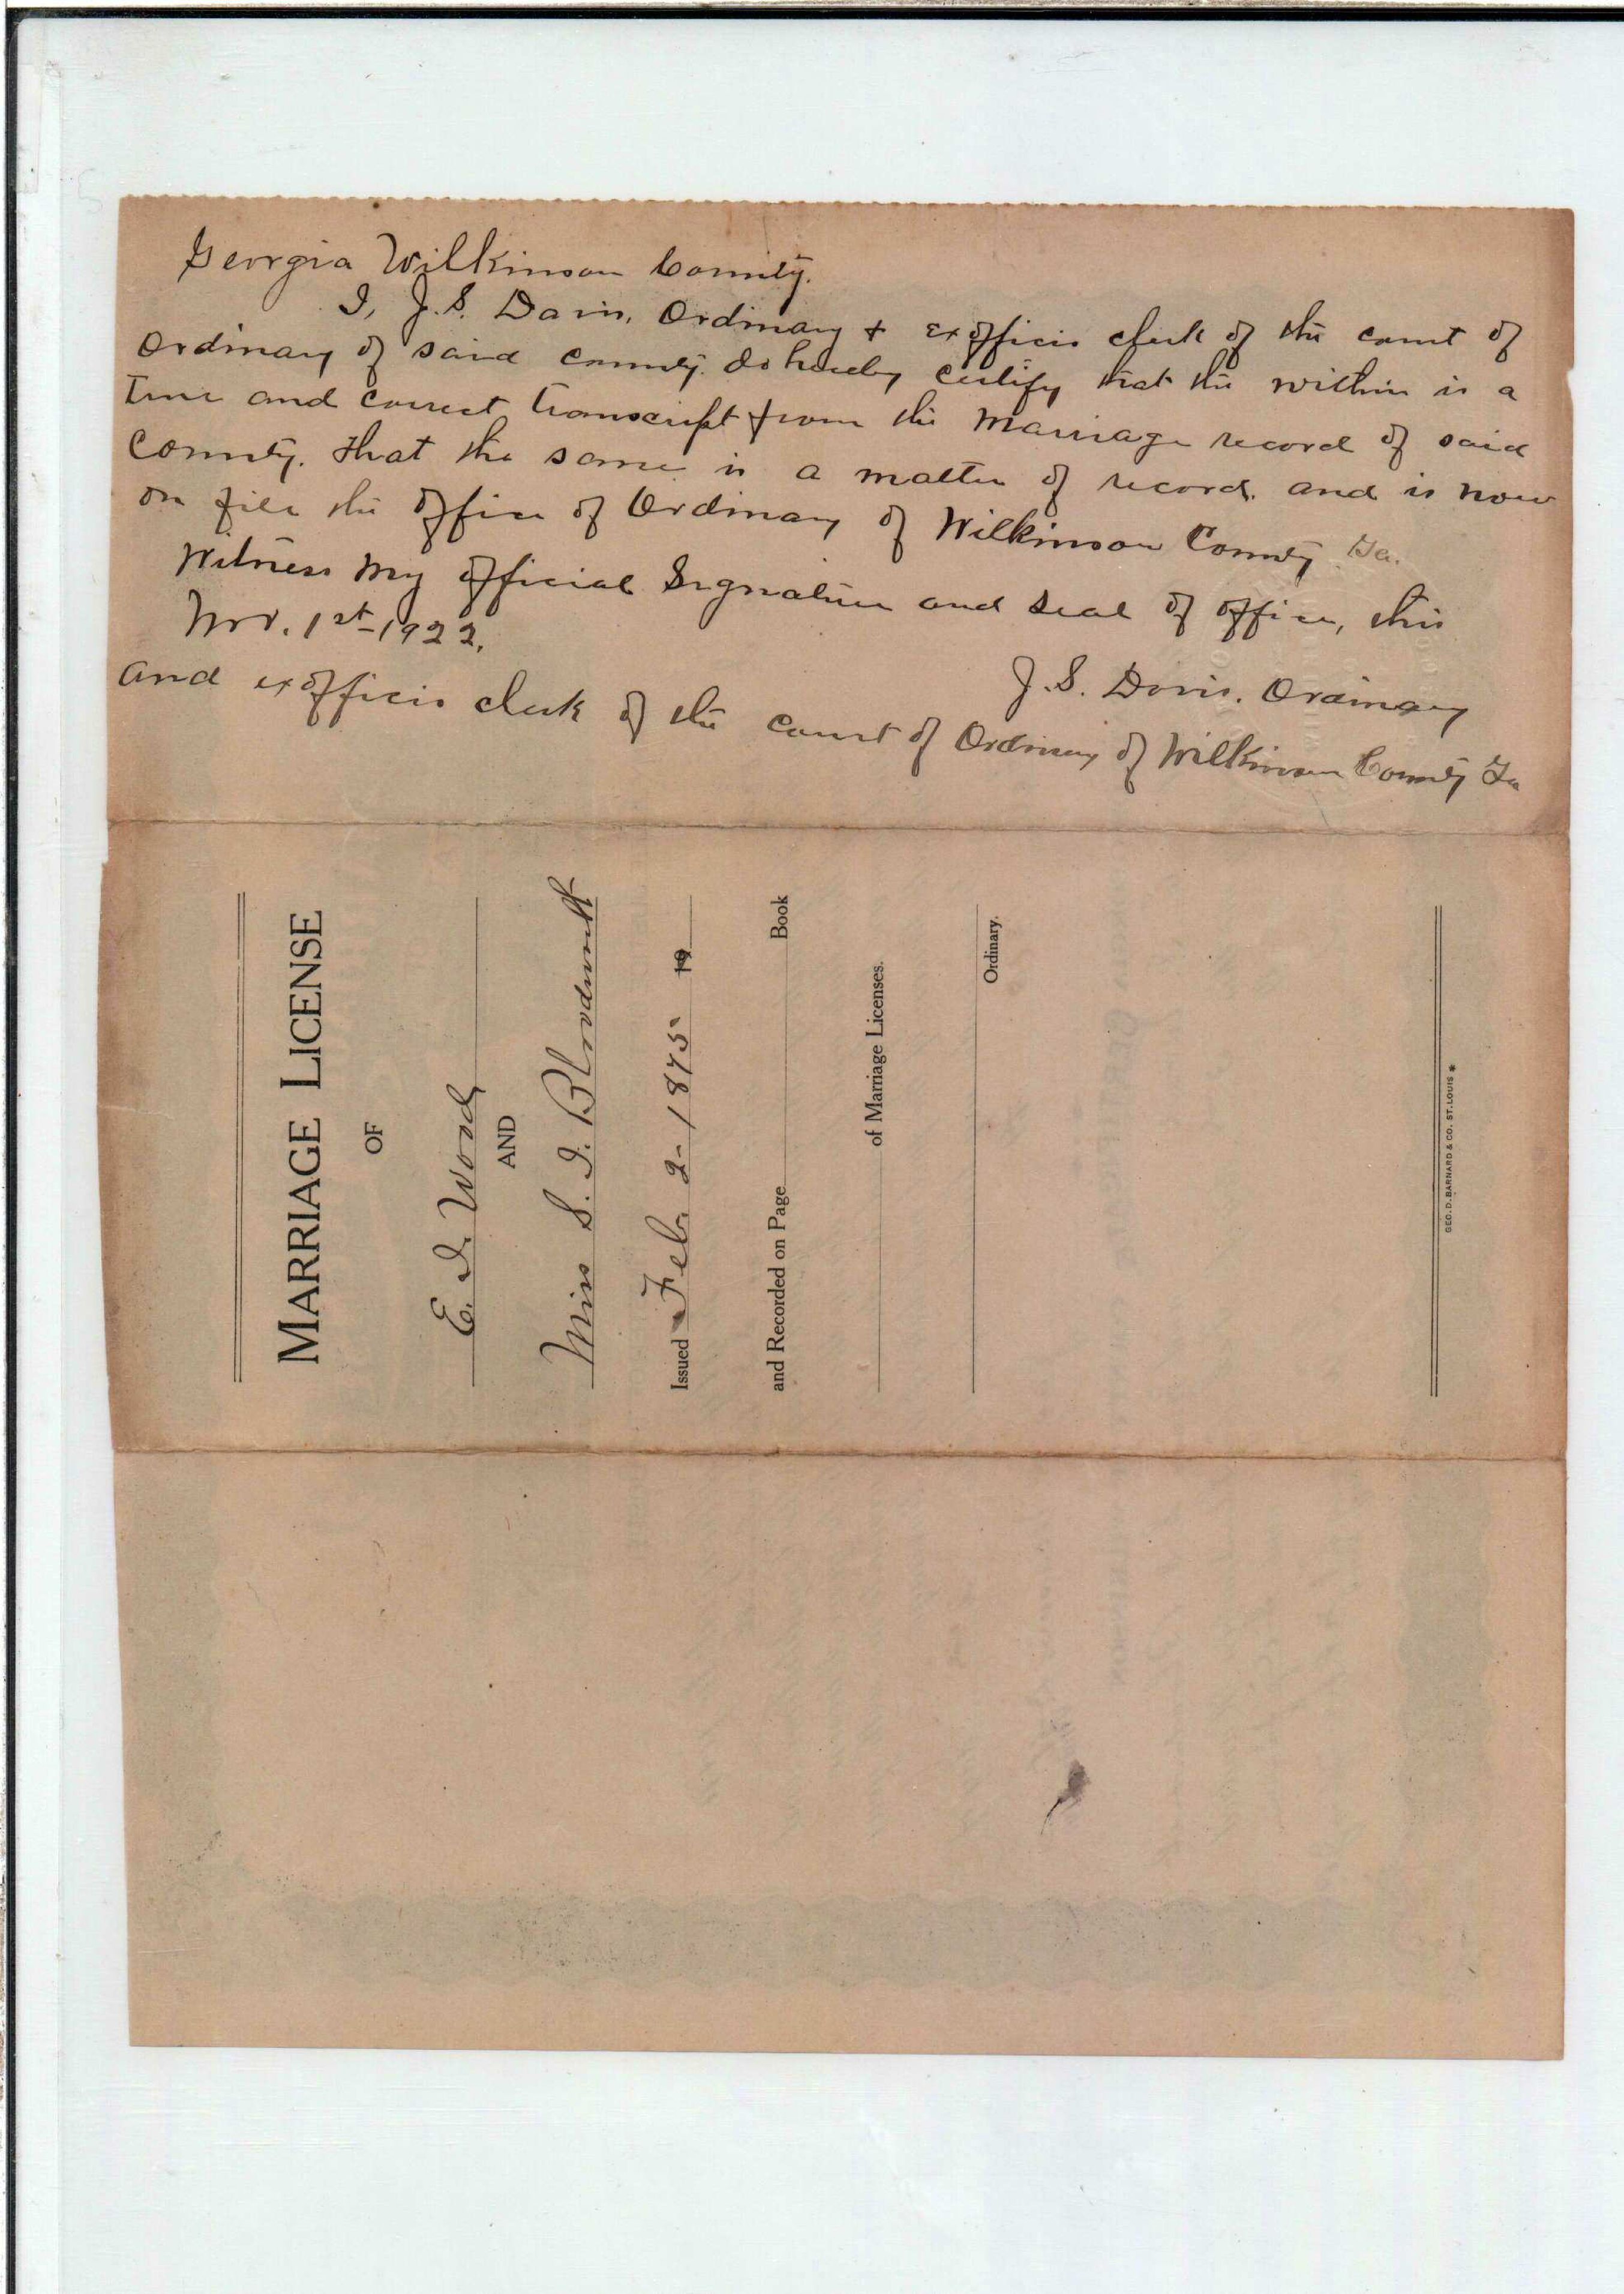 Georgia Wilkinson County.
I, J. S. Davis, Ordinary & ex officio clerk of the court of
Ordinary of said county. do hereby certify that the within is a
true and correct transcript from the marriage record of said
County. that the same is a matter of record. and is now
on file the office of Ordinary of Wilkinson County Ga.
Witness my official Signature and seal of office, this
Nov. 1st - 1922.
J. S. Davis. Ordinary
and ex officio clerk of the court of Ordinary of Wilkinson County Ga
MARRIAGE LICENSE
OF
E. I. Wood
AND
Miss S. I. Bloodworth
Issued Feb. 2 - 1875 19
and Recorded on Page Book
of Marriage Licenses.
Ordinary.
GEO. D. BARNARD & CO. ST. LOUIS